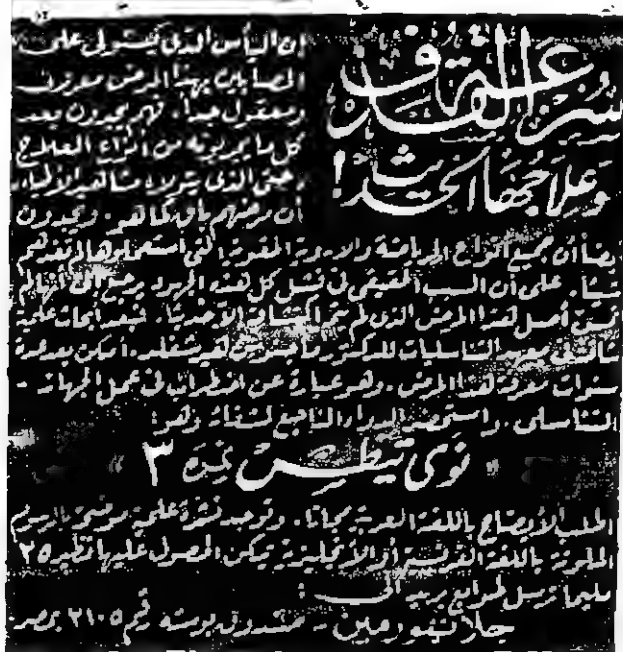 سرعة القذف
وعلاجها الحديث !
إن اليأس الذى يستولى على
المصابين بهذا المرض معروف
ومعقول جدا. فهم يجدون بعد
كل ما يجربونه من أنواع العلاج
حتى الذى يتولاه مشاهير الأطباء
أن مرضهم باق كما هو. ويجدون
أيضا أن جميع أنواع الرياضة والأدوية المقوية التى استعملوها لم تفدهم
شيئا. على أن السبب الحقيقى فى فشل كل هذه الجهود يرجع إلى أنهالم
تمس أصل هذا المرض الذى لم يتم اكتشافه إلا حديثا. فبعد أبحاث علمية
بمعهد التناسليات للدكتور ماجنوس هيرشفلد. أمكن بعد عدة
سنوات معرفة هذا المرض. وهو عبارة عن اضطراب فى عمل الجهاز -
التناسلى. واستحضر الدواء الناجع لشفائه وهو:
« نمرة ٣ »
اطلب الإيضاح باللغة العربية مجانا. وتوجد نشرة علمية موضحة بالرسوم
الملونة باللغة الفرنسية أو الانجليزية يمكن الحصول عليها نظير ٢٥
مليما ترسل طوابع بريد الى :
جلاتنفورمين - صندوق بوسته رقم ٢١٠٥ بمصر